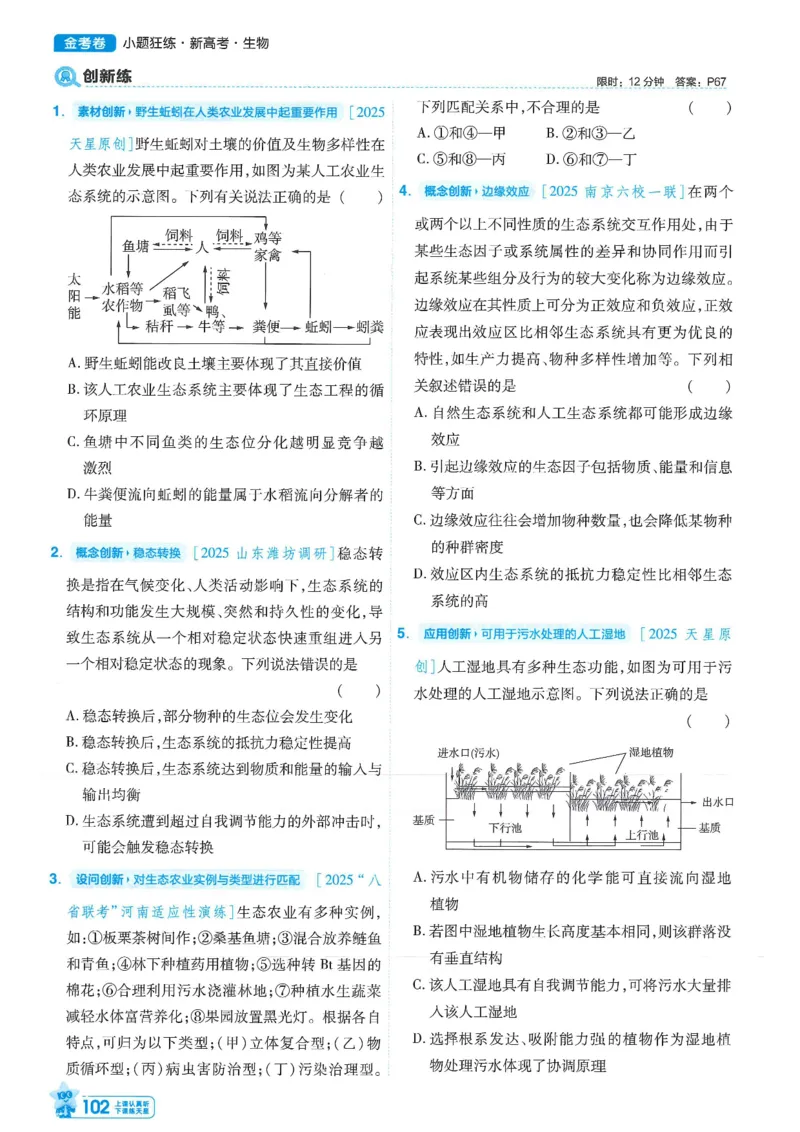 金考卷 小题狂练·新高考·生物
创新练
限时：12分钟 答案：P67
1. 素材创新 野生蚯蚓在人类农业发展中起重要作用 [2025
天星原创]野生蚯蚓对土壤的价值及生物多样性在
人类农业发展中起重要作用,如图为某人工农业生
态系统的示意图。下列有关说法正确的是 ( )
饲料 饲料 鸡等
鱼塘 人 家禽
太阳能
水稻等农作物
稻飞虱等
饲料
鸭、
秸秆 牛等 粪便 蚯蚓 蚓粪
A. 野生蚯蚓能改良土壤主要体现了其直接价值
B. 该人工农业生态系统主要体现了生态工程的循
环原理
C. 鱼塘中不同鱼类的生态位分化越明显竞争越
激烈
D. 牛粪便流向蚯蚓的能量属于水稻流向分解者的
能量
2. 概念创新 稳态转换 [2025 山东潍坊调研]稳态转
换是指在气候变化、人类活动影响下,生态系统的
结构和功能发生大规模、突然和持久性的变化,导
致生态系统从一个相对稳定状态快速重组进入另
一个相对稳定状态的现象。下列说法错误的是
( )
A. 稳态转换后,部分物种的生态位会发生变化
B. 稳态转换后,生态系统的抵抗力稳定性提高
C. 稳态转换后,生态系统达到物质和能量的输入与
输出均衡
D. 生态系统遭到超过自我调节能力的外部冲击时,
可能会触发稳态转换
3. 设问创新 对生态农业实例与类型进行匹配 [2025“八
省联考”河南适应性演练]生态农业有多种实例,
如:①板栗茶树间作;②桑基鱼塘;③混合放养鲢鱼
和青鱼;④林下种植药用植物;⑤选种转 Bt 基因的
棉花;⑥合理利用污水浇灌林地;⑦种植水生蔬菜
减轻水体富营养化;⑧果园放置黑光灯。根据各自
特点,可归为以下类型:(甲)立体复合型;(乙)物
质循环型;(丙)病虫害防治型;(丁)污染治理型。
下列匹配关系中,不合理的是 ( )
A. ①和④—甲 B. ②和③—乙
C. ⑤和⑧—丙 D. ⑥和⑦—丁
4. 概念创新 边缘效应 [2025 南京六校一联]在两个
或两个以上不同性质的生态系统交互作用处,由于
某些生态因子或系统属性的差异和协同作用而引
起系统某些组分及行为的较大变化称为边缘效应。
边缘效应在其性质上可分为正效应和负效应,正效
应表现出效应区比相邻生态系统具有更为优良的
特性,如生产力提高、物种多样性增加等。下列相
关叙述错误的是 ( )
A. 自然生态系统和人工生态系统都可能形成边缘
效应
B. 引起边缘效应的生态因子包括物质、能量和信息
等方面
C. 边缘效应往往会增加物种数量,也会降低某物种
的种群密度
D. 效应区内生态系统的抵抗力稳定性比相邻生态
系统的高
5. 应用创新 可用于污水处理的人工湿地 [2025 天星原
创]人工湿地具有多种生态功能,如图为可用于污
水处理的人工湿地示意图。下列说法正确的是
( )
进水口(污水) 湿地植物
出水口
基质 下行池 上行池 基质
A. 污水中有机物储存的化学能可直接流向湿地
植物
B. 若图中湿地植物生长高度基本相同,则该群落没
有垂直结构
C. 该人工湿地具有自我调节能力,可将污水大量排
入该人工湿地
D. 选择根系发达、吸附能力强的植物作为湿地植
物处理污水体现了协调原理
102 上课认真听
下课练天星